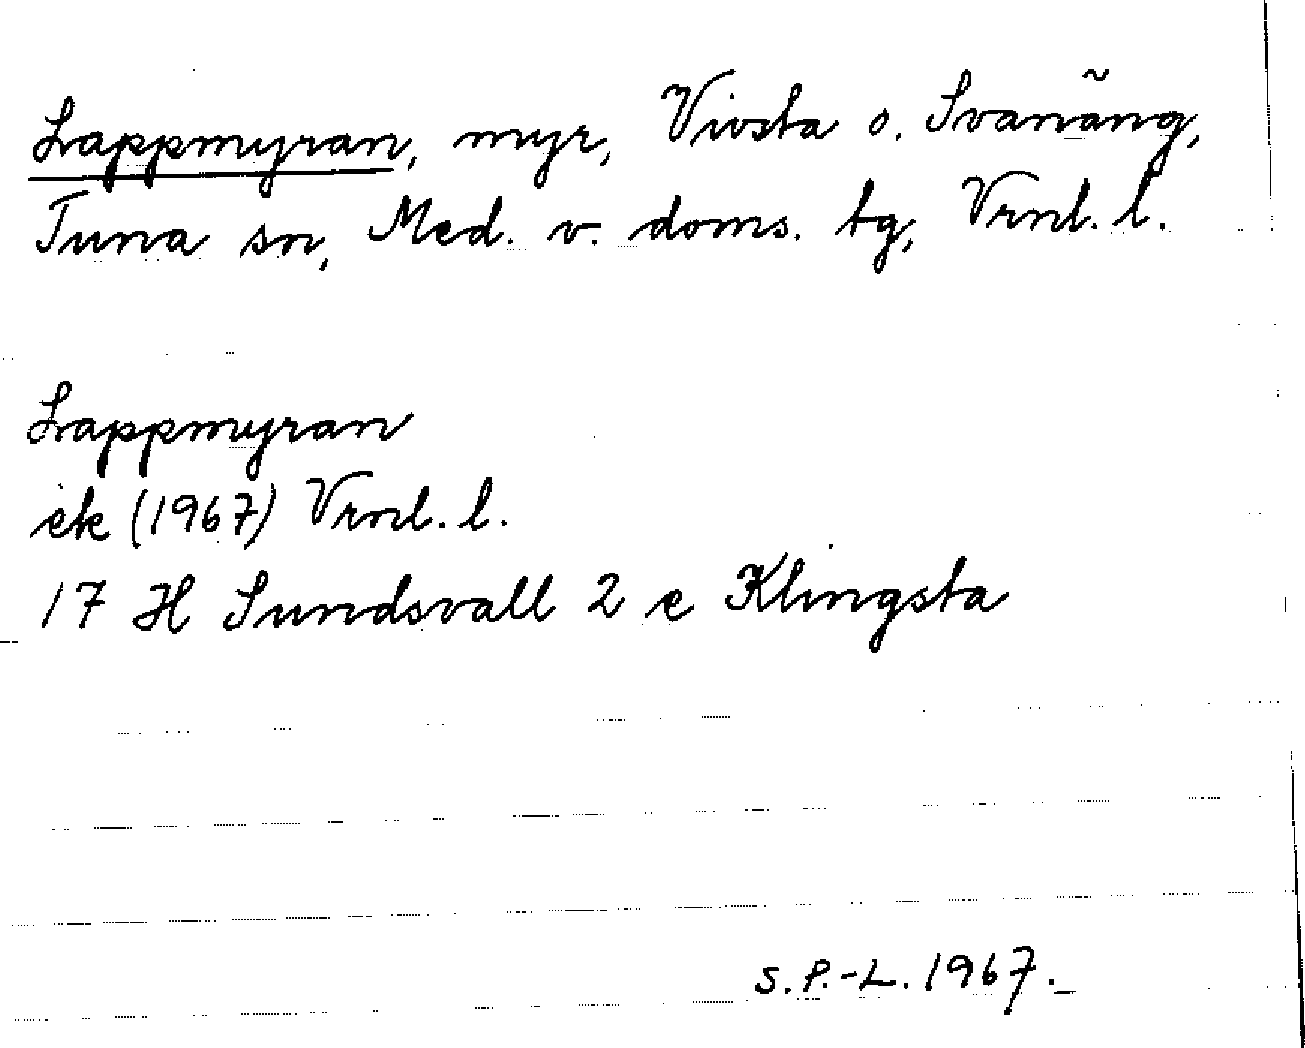 Lappmyran, myr, Vivsta o. Svanäng,
Tuna sn, Med. v. doms. tg, Vrnl. l.
Lappmyran
ek (1967) Vrnl. l.
17 H Sundsvall 2 e Klingsta
S.P.-L. 1967.